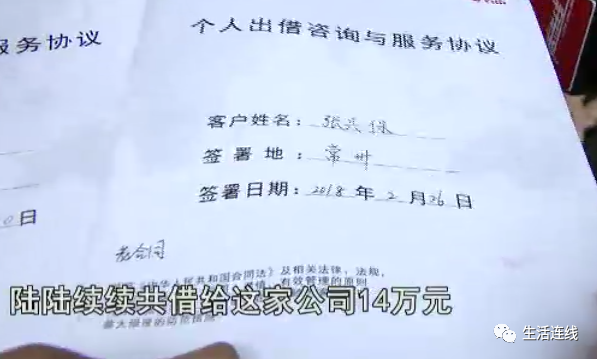 服务协议
个人出借咨询与服务协议
客户姓名：张兴保
签署地：常州
签署日期：2018年2月26日
0日
老合同
中华人民共和国合同法》及相关法律，法规，
有效管理的原则
陆陆续续共借给这家公司14万元
生活连线